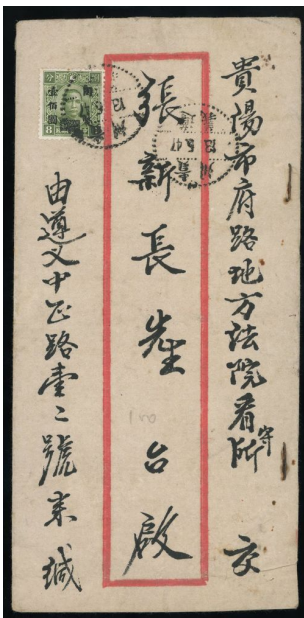 貴陽市府路地方法院看守所 交
張新長先生台啟
由遵义中正路壹二號宋緘
壹佰圓
8